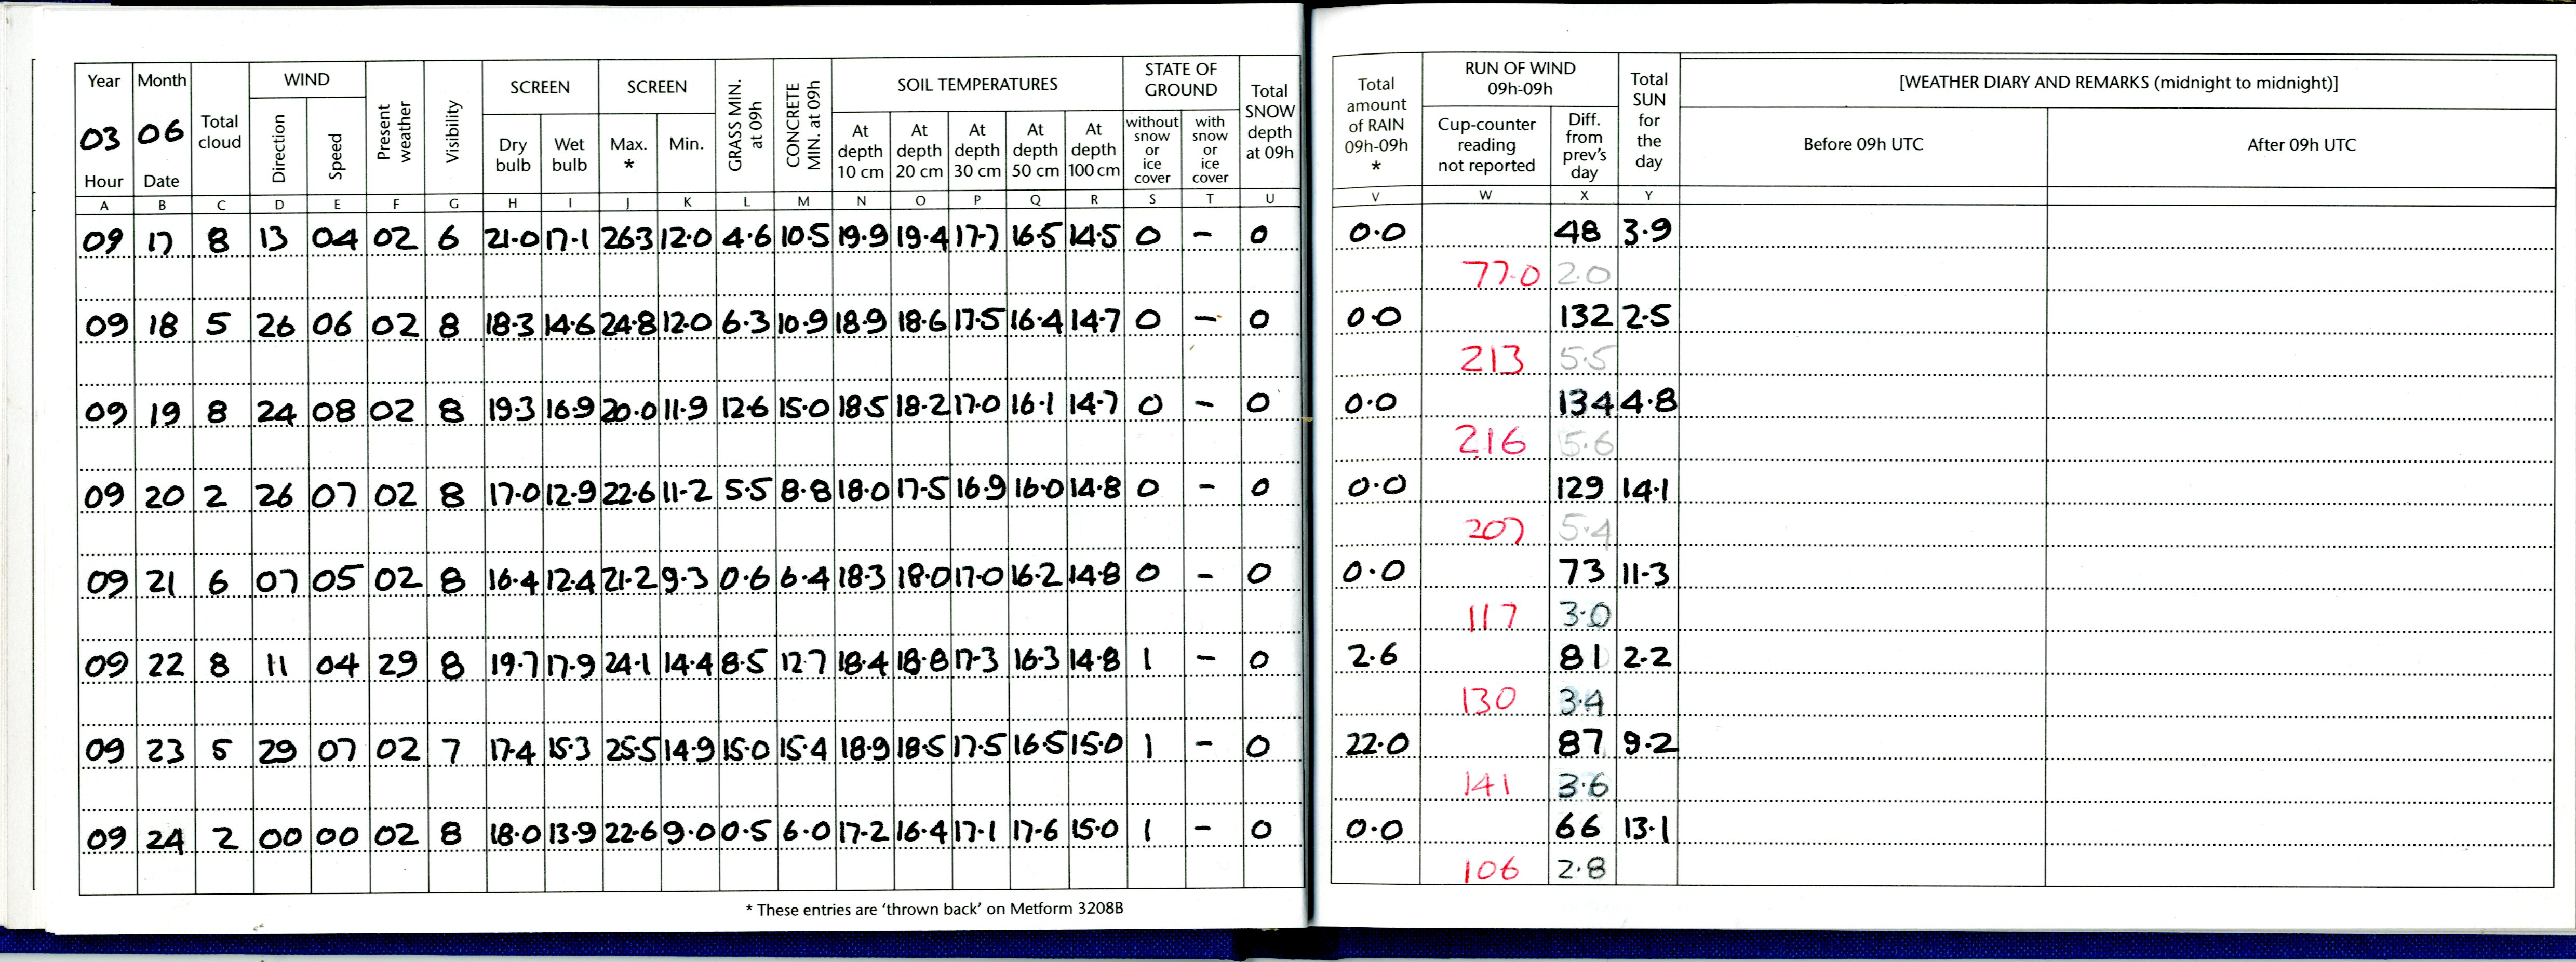 Year Month Total cloud WIND Present weather Visibility SCREEN SCREEN GRASS MIN. at 09h CONCRETE MIN. at 09h SOIL TEMPERATURES STATE OF GROUND Total SNOW depth at 09h Total amount of RAIN 09h-09h * RUN OF WIND 09h-09h Total SUN for the day [WEATHER DIARY AND REMARKS (midnight to midnight)]
03 06 Direction Speed Dry bulb Wet bulb Max. * Min. At depth 10 cm At depth 20 cm At depth 30 cm At depth 50 cm At depth 100 cm without snow or ice cover with snow or ice cover Cup-counter reading not reported Diff. from prev's day Before 09h UTC After 09h UTC
Hour Date
A B C D E F G H I J K L M N O P Q R S T U V W X Y
09 17 8 13 04 02 6 21.0 17.1 26.3 12.0 4.6 10.5 19.9 19.4 17.7 16.5 14.5 0 - 0 0.0 48 3.9
77.0 2.0
09 18 5 26 06 02 8 18.3 14.6 24.8 12.0 6.3 10.9 18.9 18.6 17.5 16.4 14.7 0 - 0 0.0 132 2.5
213 5.5
09 19 8 24 08 02 8 19.3 16.9 20.0 11.9 12.6 15.0 18.5 18.2 17.0 16.1 14.7 0 - 0 0.0 134 4.8
216 5.6
09 20 2 26 07 02 8 17.0 12.9 22.6 11.2 5.5 8.8 18.0 17.5 16.9 16.0 14.8 0 - 0 0.0 129 14.1
207 5.4
09 21 6 07 05 02 8 16.4 12.4 21.2 9.3 0.6 6.4 18.3 18.0 17.0 16.2 14.8 0 - 0 0.0 73 11.3
117 3.0
09 22 8 11 04 29 8 19.7 17.9 24.1 14.4 8.5 12.7 18.4 18.8 17.3 16.3 14.8 1 - 0 2.6 81 2.2
130 3.4
09 23 5 29 07 02 7 17.4 15.3 25.5 14.9 15.0 15.4 18.9 18.5 17.5 16.5 15.0 1 - 0 22.0 87 9.2
141 3.6
09 24 2 00 00 02 8 18.0 13.9 22.6 9.0 0.5 6.0 17.2 16.4 17.1 17.6 15.0 1 - 0 0.0 66 13.1
106 2.8
* These entries are 'thrown back' on Metform 3208B